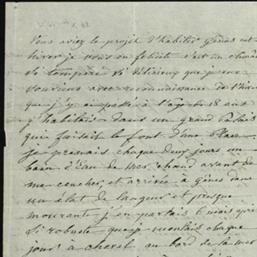 Vous aviez le projet d'habiter Gênes cet
hiver je vous en félicite c'est un climat
si tempéré si délicieux que je me
souviens avec reconnaissance de l'hiver
que j'y ai passé à l'age de 18 ans
j'habitais dans un grand Palais
qui faisait le fond d'une Place
je prenais chaque deux jours un
bain d'eau de mer chaud avant de
me coucher, et arrivée à Gênes dans
un état de langueur et presque
mourante j'en partais 6 mois après
si robuste que je montais chaque
jour à cheval au bord de la mer